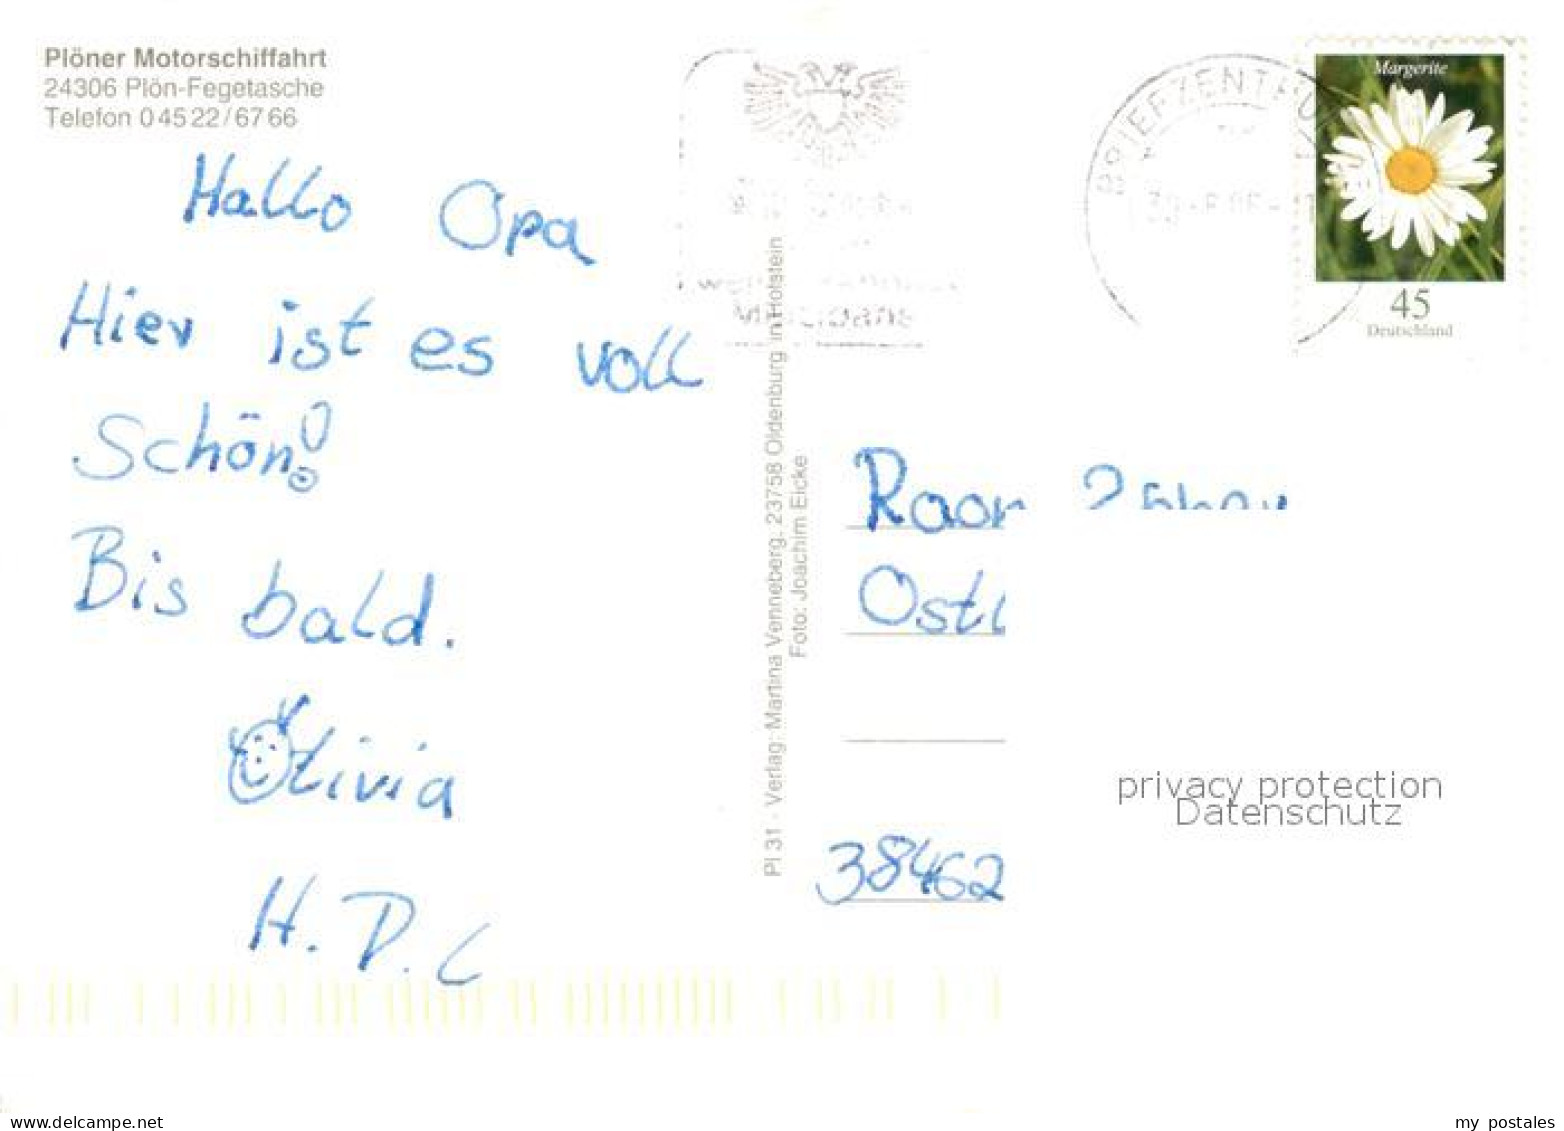 Plöner Motorschiffahrt
24306 Plön-Fegetasche
Telefon 0 45 22 / 67 66
Hallo Opa
Hier ist es voll
Schön!
Bis bald.
Olivia
H. D. L
Pl 31 - Verlag: Martina Venneberg, 23758 Oldenburg in Holstein
Foto: Joachim Eicke
BRIEFZENTRUM
Margerite
45
Deutschland
38462
privacy protection
Datenschutz
www.delcampe.net
my_postales